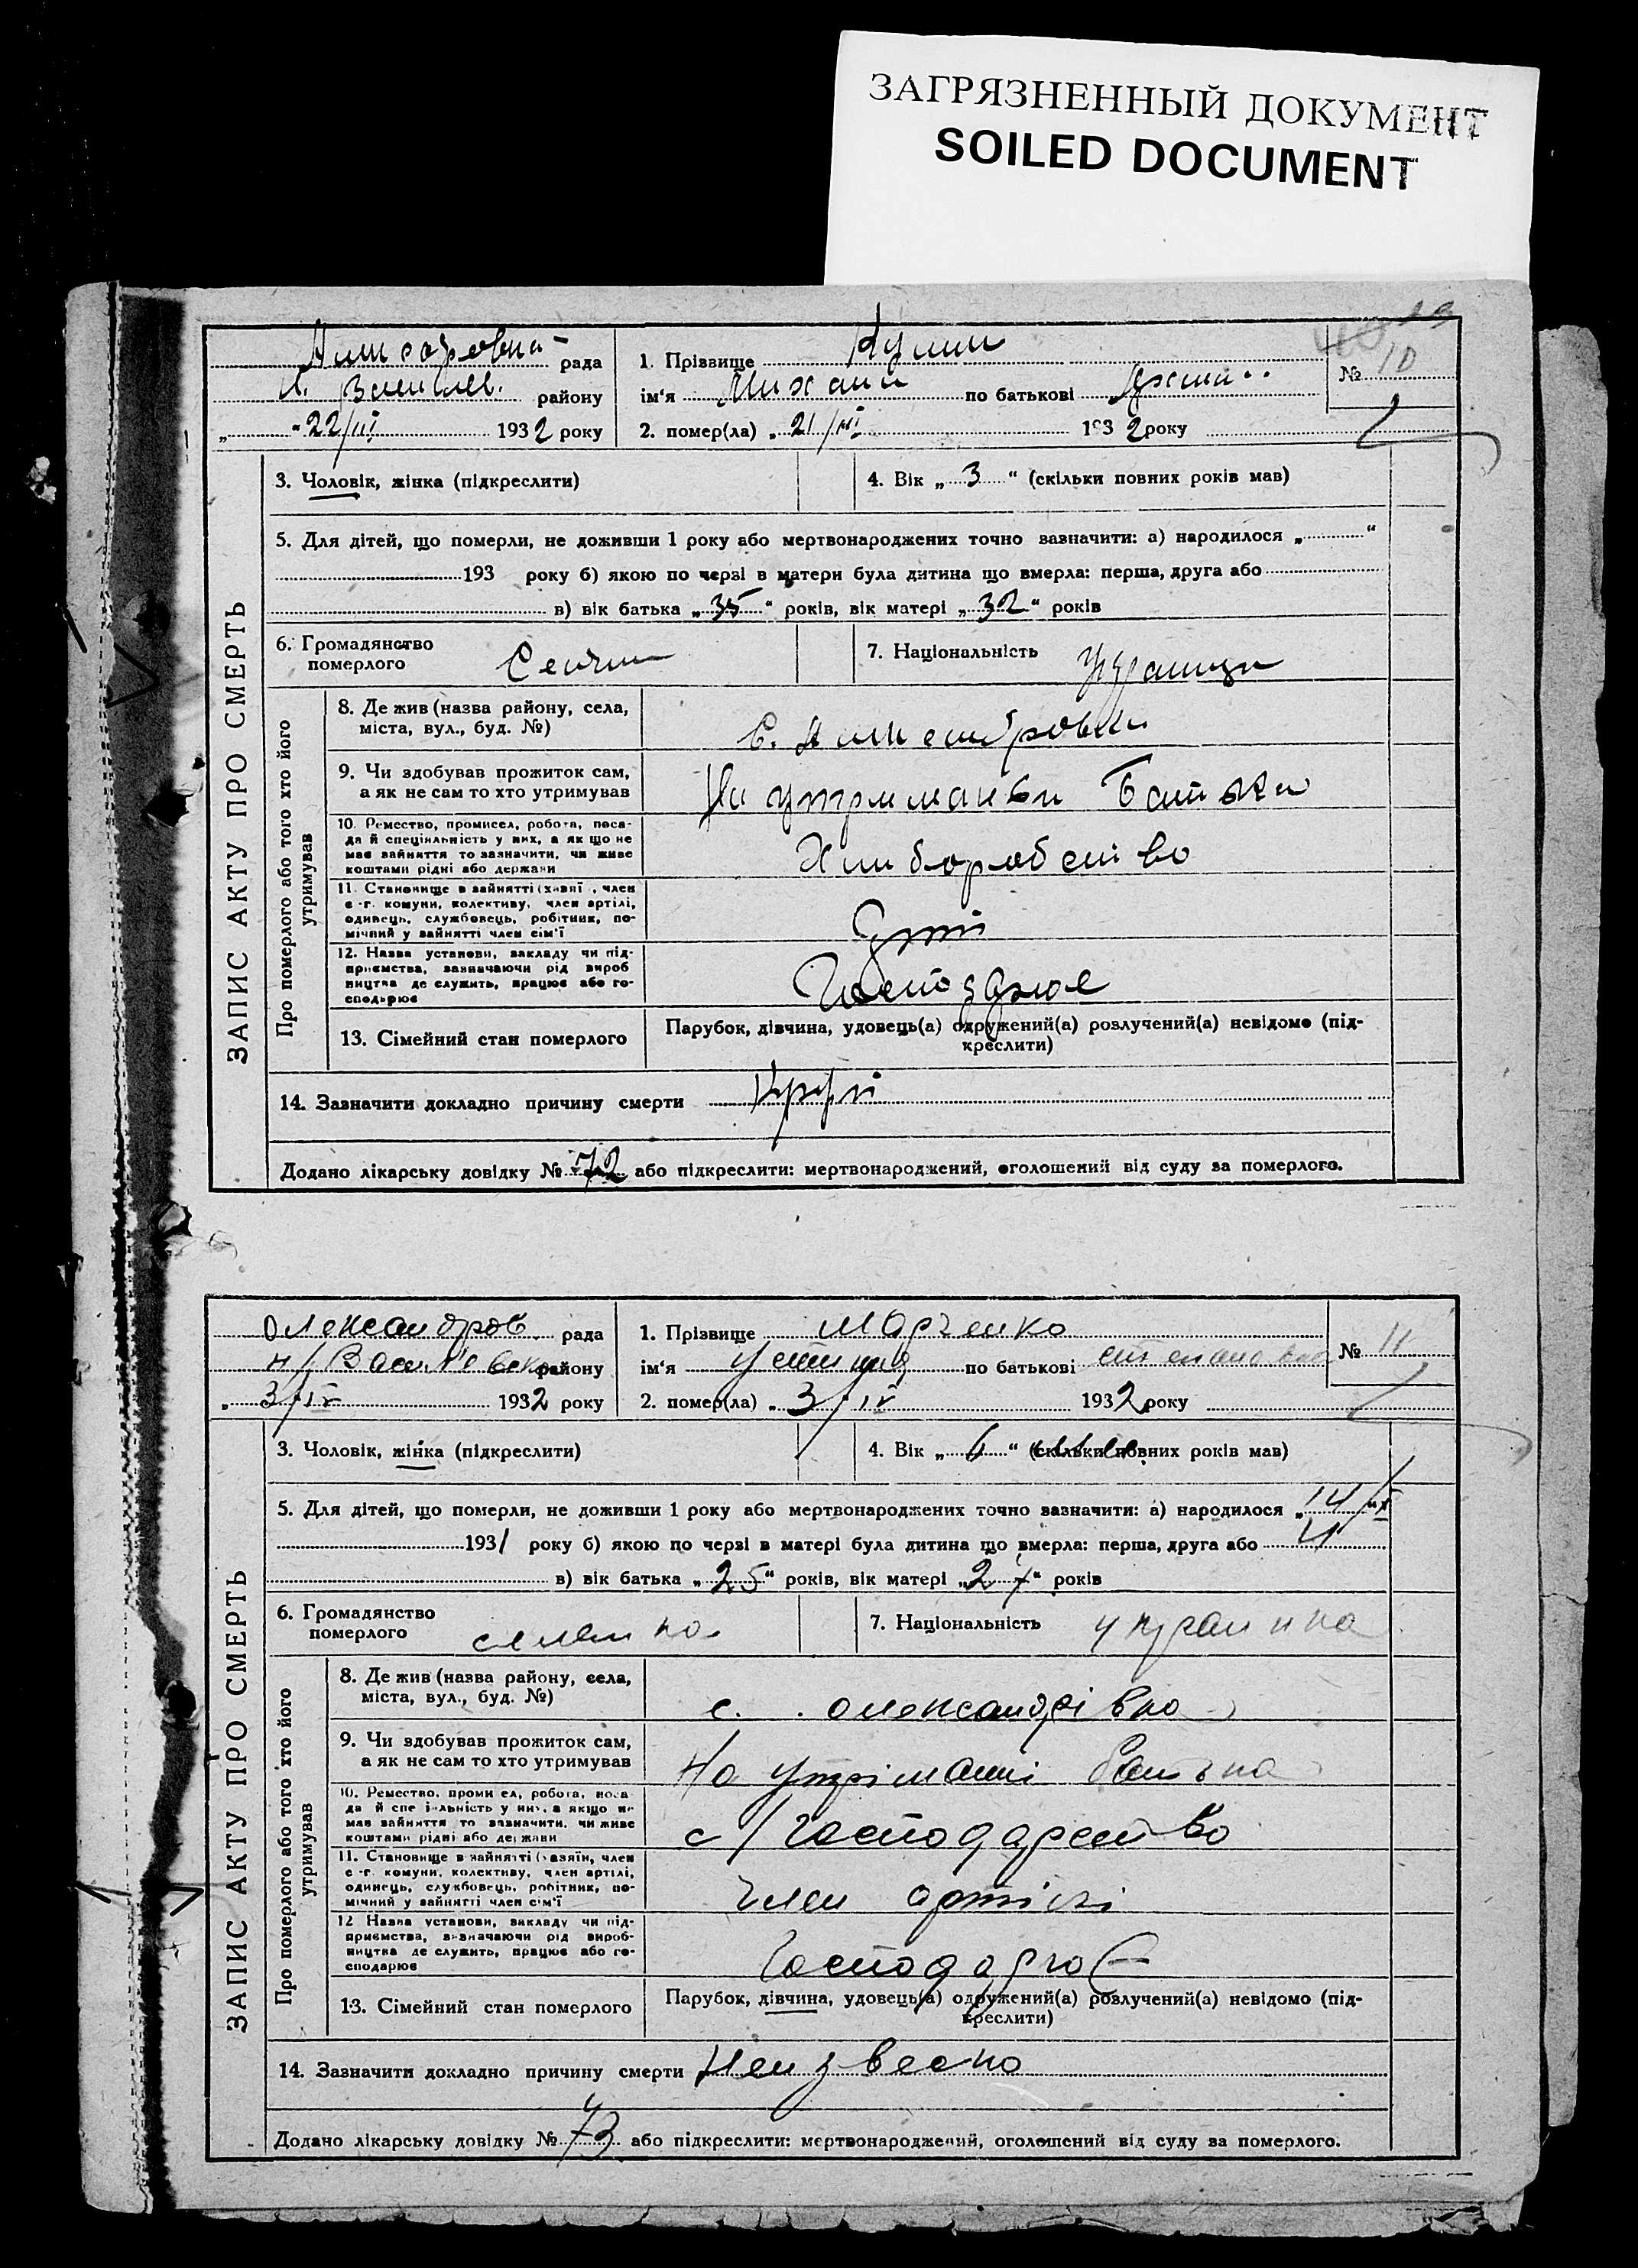 ЗАГРЯЗНЕННЫЙ ДОКУМЕНТ
SOILED DOCUMENT
рада
району
"22/III 1932 року
1. Прізвище
ім'я Михаил по батькові
2. помер(ла) „21/III 1932 року
№ 10
3. Чоловік, жінка (підкреслити)
4. Вік „3" (скільки повних років мав)
5. Для дітей, що померли, не доживши 1 року або мертвонароджених точно зазначити: а) народилося „ "
193 року б) якою по черзі в матери була дитина що вмерла: перша, друга або
в) вік батька „35" років, вік матері „32" років
6. Громадянство
померлого
7. Національність
ЗАПИС АКТУ ПРО СМЕРТЬ
Про померлого або того хто його
утримував
8. Де жив (назва району, села,
міста, вул., буд. №)
С.
9. Чи здобував прожиток сам,
а як не сам то хто утримував
На утриманьи Батька
10. Ремество, промисел, робота, поса-
да й спеціяльність у них, а як що не
має зайняття то зазначити, чи живе
коштами рідні або держави
Хлиборобство
11. Становище в зайнятті (хазяї, член
с.-г. комуни, колективу, член артілі,
одинець, службовець, робітник, по-
мічний у зайнятті член сім'ї
12. Назва установи, закладу чи під-
приємства, зазначаючи рід вироб
ництва де служить, працює або го-
сподарює
Господарює
13. Сімейний стан померлого
Парубок, дівчина, удовець(а) одружений(а) розлучений(а) невідомо (під-
креслити)
14. Зазначити докладно причину смерти
Додано лікарську довідку № 72 або підкреслити: мертвонароджений, оголошений від суду за померлого.
Олександров. рада
н/Василевск. району
„3/IV 1932 року
1. Прізвище Марченко
ім'я Устиния по батькові Степановна
2. помер(ла) „3/IV 1932 року
№ 11
3. Чоловік, жінка (підкреслити)
4. Вік „6" (скільки повних років мав)
5. Для дітей, що померли, не доживши 1 року або мертвонароджених точно зазначити: а) народилося „14/X
1931 року б) якою по черзі в матері була дитина що вмерла: перша, друга або 4
в) вік батька „25" років, вік матері „27" років
6. Громадянство
померлого
селянка
7. Національність украинка
ЗАПИС АКТУ ПРО СМЕРТЬ
Про померлого або того хто його
утримував
8. Де жив (назва району, села,
міста, вул., буд. №)
с. Олександрівка
9. Чи здобував прожиток сам,
а як не сам то хто утримував
На утріманні батька
10. Ремество, промисел, робота, поса
да й спеціяльність у них, а якщо не
має зайняття то зазначити, чи живе
коштами рідні або держави
с/господарство
11. Становище в зайнятті (хазяїн, член
с.-г. комуни, колективу, член артілі,
одинець, службовець, робітник, по-
мічний у зайнятті член сім'ї
член артілі
12 Назва установи, закладу чи під-
приємства, зазначаючи рід вироб-
ництва де служить, працює або го-
сподарює
Господарює
13. Сімейний стан померлого
Парубок, дівчина, удовець(а) одружений(а) розлучений(а) невідомо (під-
креслити)
14. Зазначити докладно причину смерти Неизвесно
Додано лікарську довідку № 73 або підкреслити: мертвонароджений, оголошений від суду за померлого.